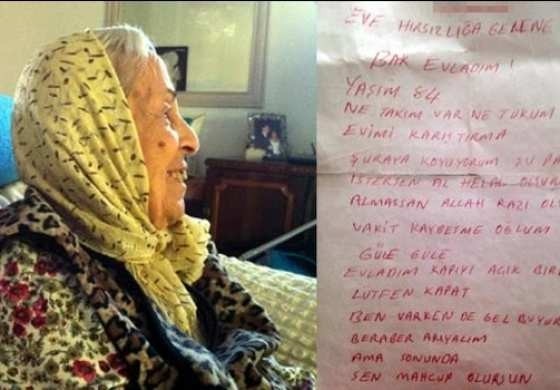 EVE HIRSIZLIĞA GELENE
BAK EVLADIM !
YAŞIM 84
NE TAKIM VAR NE TUKUM
EVIMI KARIŞTIRMA
ŞURAYA KOYUYORUM ŞU
ISTERSEN AL HELAL OLSUN
ALMASSAN ALLAH RAZI
VAKIT KAYBETME OĞLUM
GÜLE GÜLE
EVLADIM KAPIYI AÇIK
LÜTFEN KAPAT
BEN VARKEN DE GEL BUYUR
BERABER ARIYALIM
AMA SONUNDA
SEN MAHCUP OLURSUN